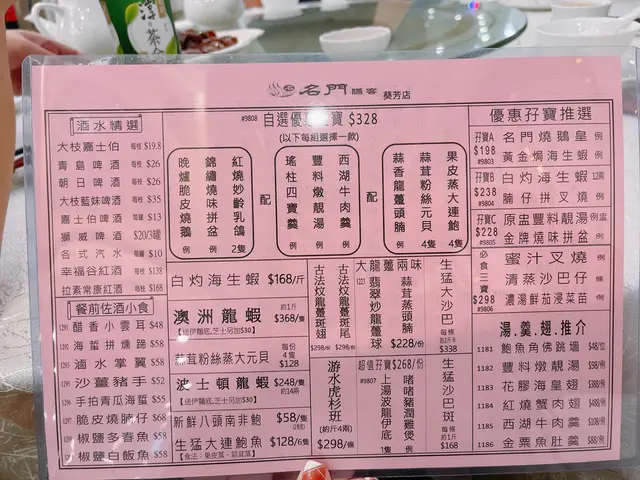 名門 膳客 葵芳店
酒水精選
大枝嘉士伯 每枝 $19.8
青島啤酒 每枝 $26
朝日啤酒 每枝 $26
大枝藍妹啤酒 每枝 $35
嘉士伯啤酒 每罐 $13
獅威啤酒 $20/3罐
各式汽水 每罐 $10
幸福谷紅酒 每枝 $138
拉素常康紅酒 每枝 $168
餐前佐酒小食
1291 醋香小雲耳 $48
1292 海蜇拼燻蹄 $58
1293 滷水掌翼 $58
1295 沙薑豬手 $52
1296 手拍青瓜海蜇 $55
1297 脆皮燒腩仔 $68
1298 椒鹽多春魚 $58
椒鹽白飯魚 $58
#9808 自選優 寶 $328
(以下每組選一款)
晚爐脆皮燒鵝 例
錦繡燒味拼盆 例
紅燒妙齡乳鴿 2隻
配
瑤柱四寶羹 例
豐料燉靚湯 例
西湖牛肉羹 例
配
蒜香龍躉頭腩 例
蒜茸粉絲元貝 4隻
果皮蒸大連鮑 4隻
白灼海生蝦 $168/斤
澳洲龍蝦 約1斤 $368/隻
【送伊麵底,芝士另加$30】
蒜茸粉絲蒸大元貝 每份 4隻 $128
波士頓龍蝦 $248/隻 約14兩
【送伊麵底,芝士另加$30】
新鮮八頭南非鮑 $58/隻
生猛大連鮑魚 $128/6隻
【食法:果皮蒸、蒜茸蒸】
古法炆龍躉斑翅 $298/份
古法炆龍躉斑尾 $298/份
大龍躉兩味
翡翠炒龍躉球
蒜茸蒸頭腩
$228/份
生猛大沙巴 每條 約2斤 $338
游水虎杉斑 (約斤4兩) $298/條
超值孖寶$268/份
#9807 上湯波龍伊底 1隻
啫啫豬潤雞煲 例
生猛沙巴斑 每條 約1斤 $168
優惠孖寶推選
孖寶A $198 #9803
名門燒鵝皇 例
黃金焗海生蝦 例
孖寶B $238 #9804
白灼海生蝦 12兩
腩仔拼叉燒 例
孖寶C $228 #9805
原盅豐料靚湯 例盅
金牌燒味拼盆 例
必食三寶 $298 #9806
蜜汁叉燒 例
清蒸沙巴仔 條
濃湯鮮茄浸菜苗 例
湯.羹.翅.推介
1181 鮑魚角佛跳墻 $48/位
1182 豐料燉靚湯 $98/例
1183 花膠海皇翅 $98/例
1184 紅燒蟹肉翅 $98/例
1185 西湖牛肉羹 $88/例
1186 金粟魚肚羹 $88/例